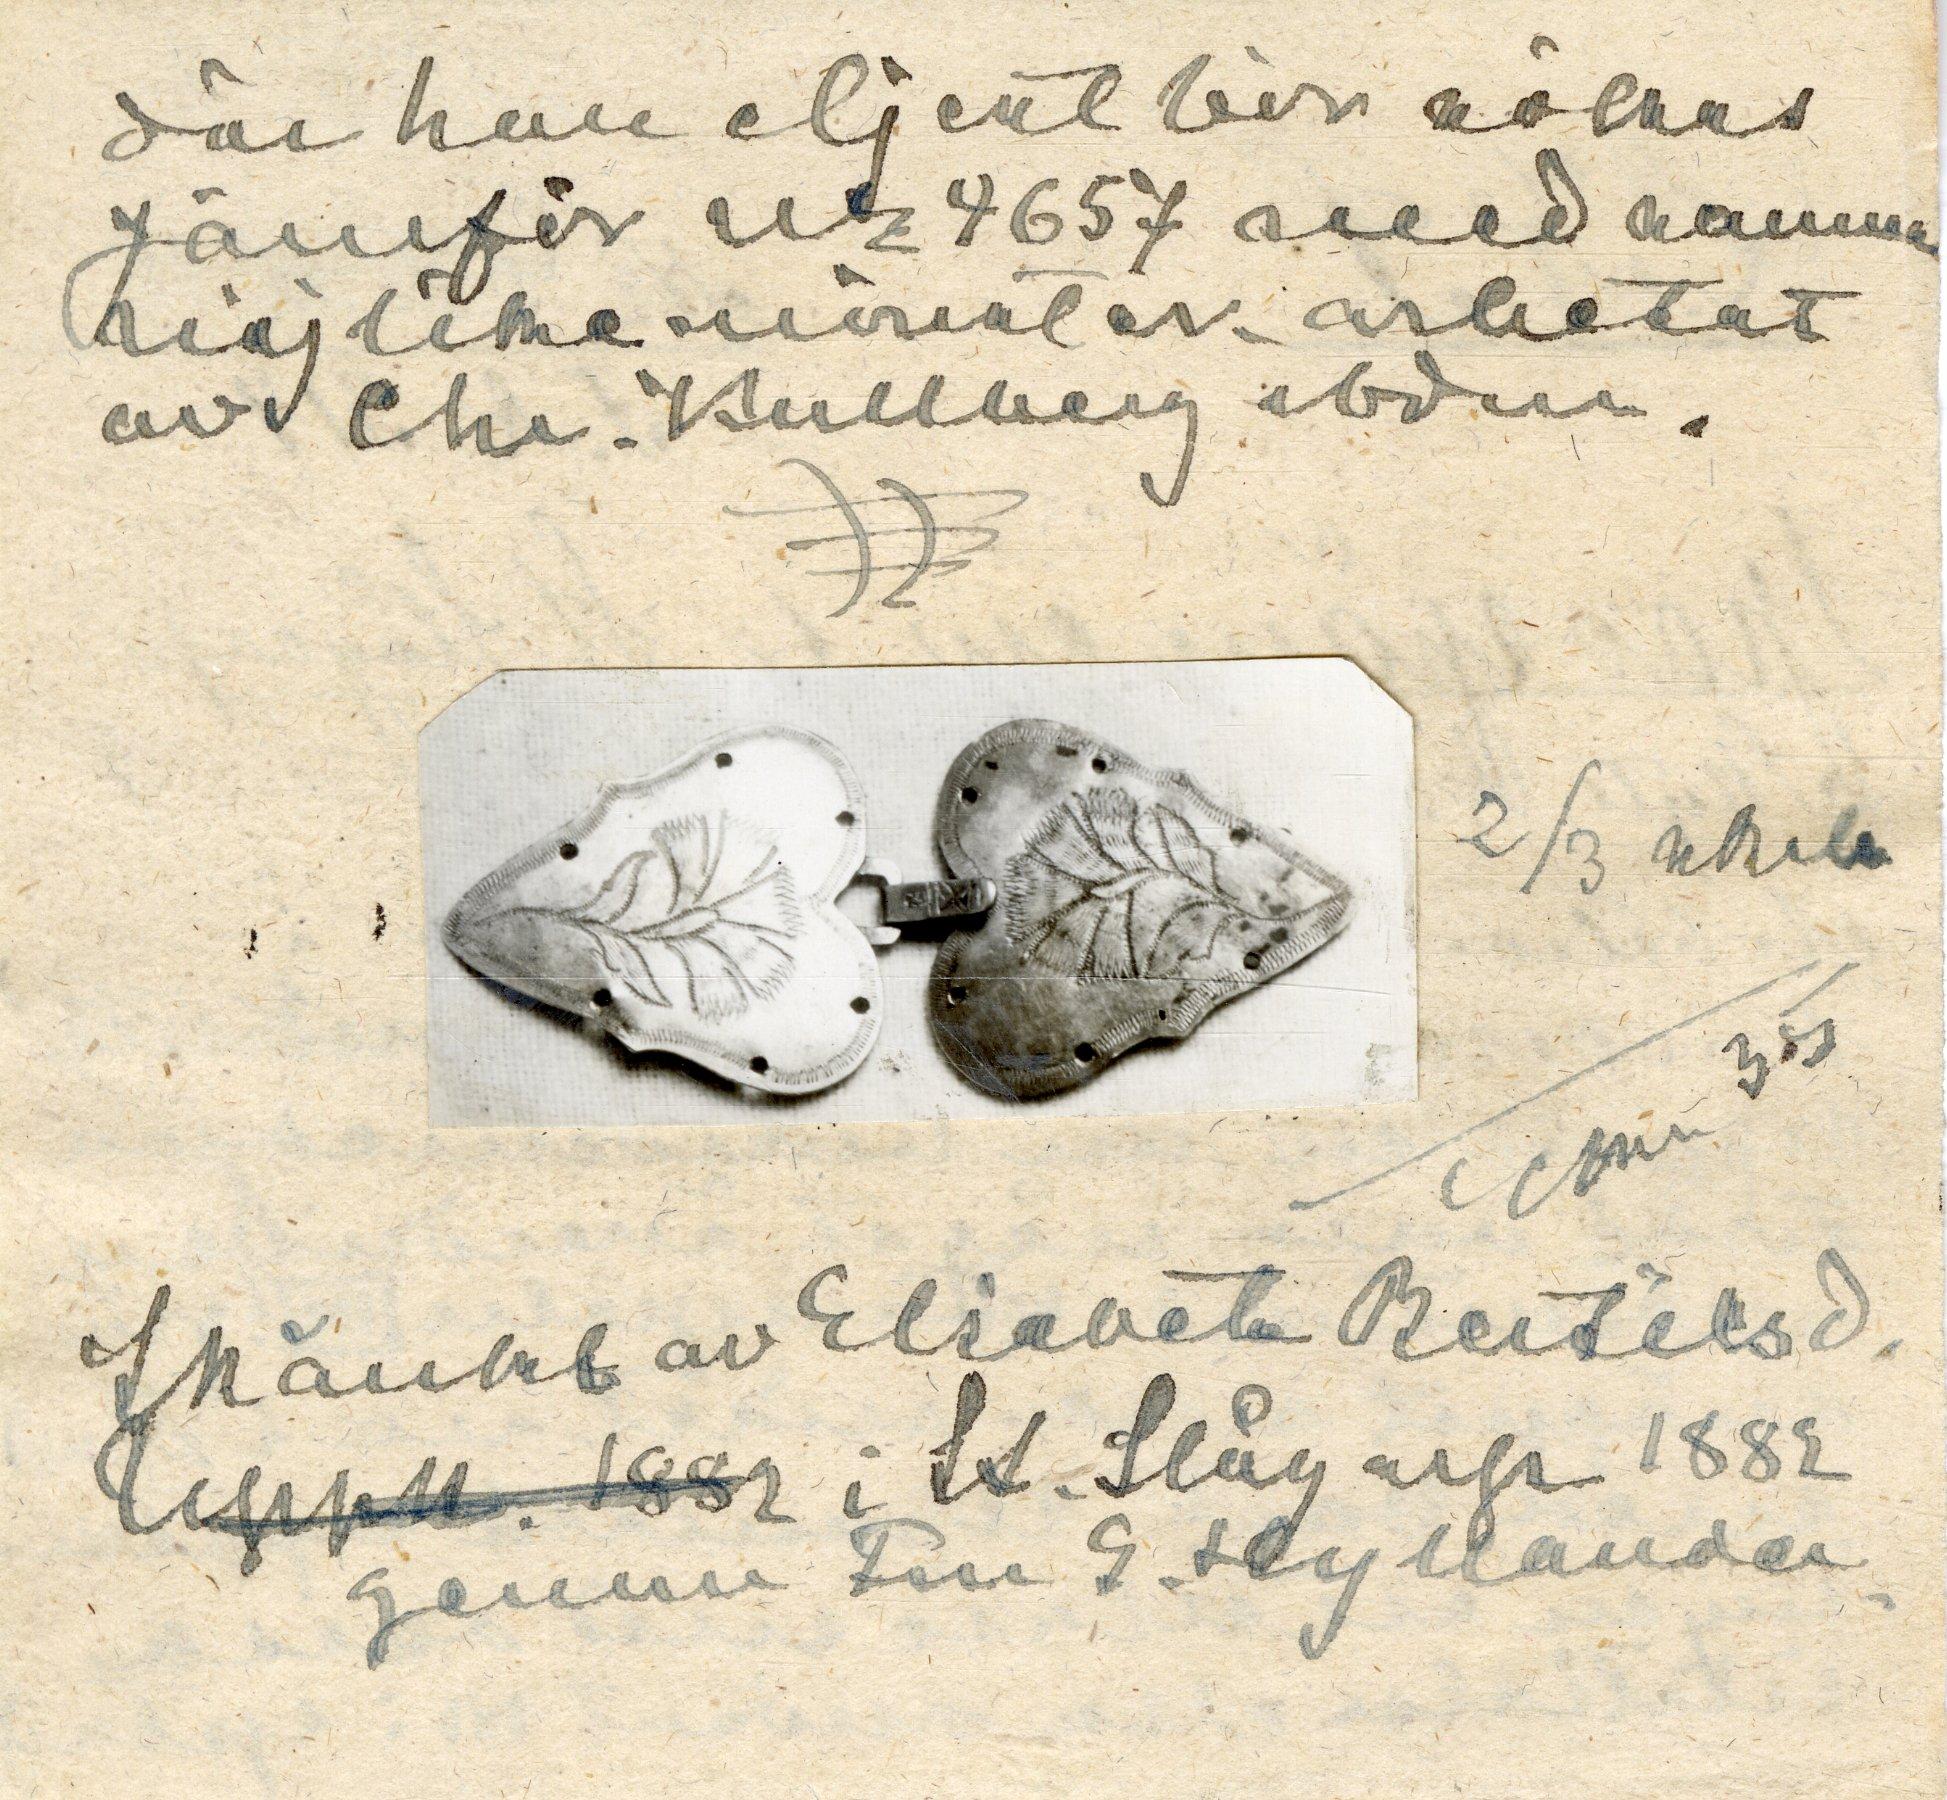 där han eljest bör sökas
jämför nr 4657 med samma
nöjlika mönster arbetat
av Chr. Kullberg ibdm.
2/3 skala
355
Skänkt av Elisabeta Bertilsd.
Uppst. 1882 i St. Slågarp 1882
genom Frn E. Hyllander.